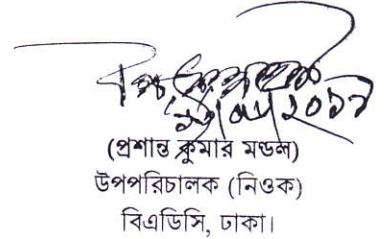 (প্রশান্ত কুমার মন্ডল)
উপপরিচালক (নিওক)
বিএডিসি, ঢাকা।